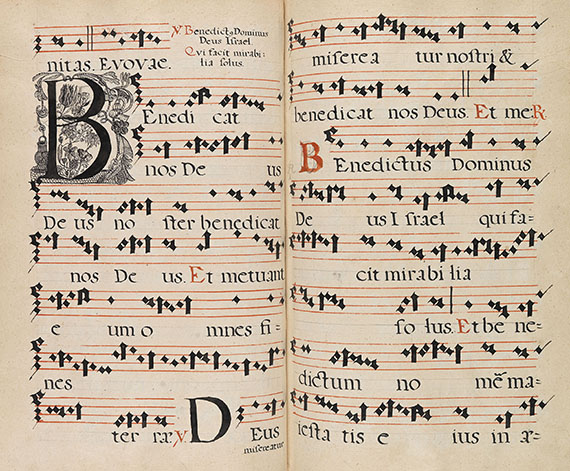 nitas. Evovae.
℣ Benedict9 Dominus
Deus Israel.
Qui facit mirabi-
lia solus.
BEnedi cat
nos De us
De us no ster benedicat
nos De us. Et metuant
e um o mnes fi=
nes
ter ræ ℣ DEus
misereatur
miserea tur nostri &
benedicat nos Deus. Et me: ℟
BEnedictus Dominus
De us Israel qui fa=
cit mirabi lia
so lus. Et be ne=
dictum no mẽ ma=
iesta tis e ius in æ=